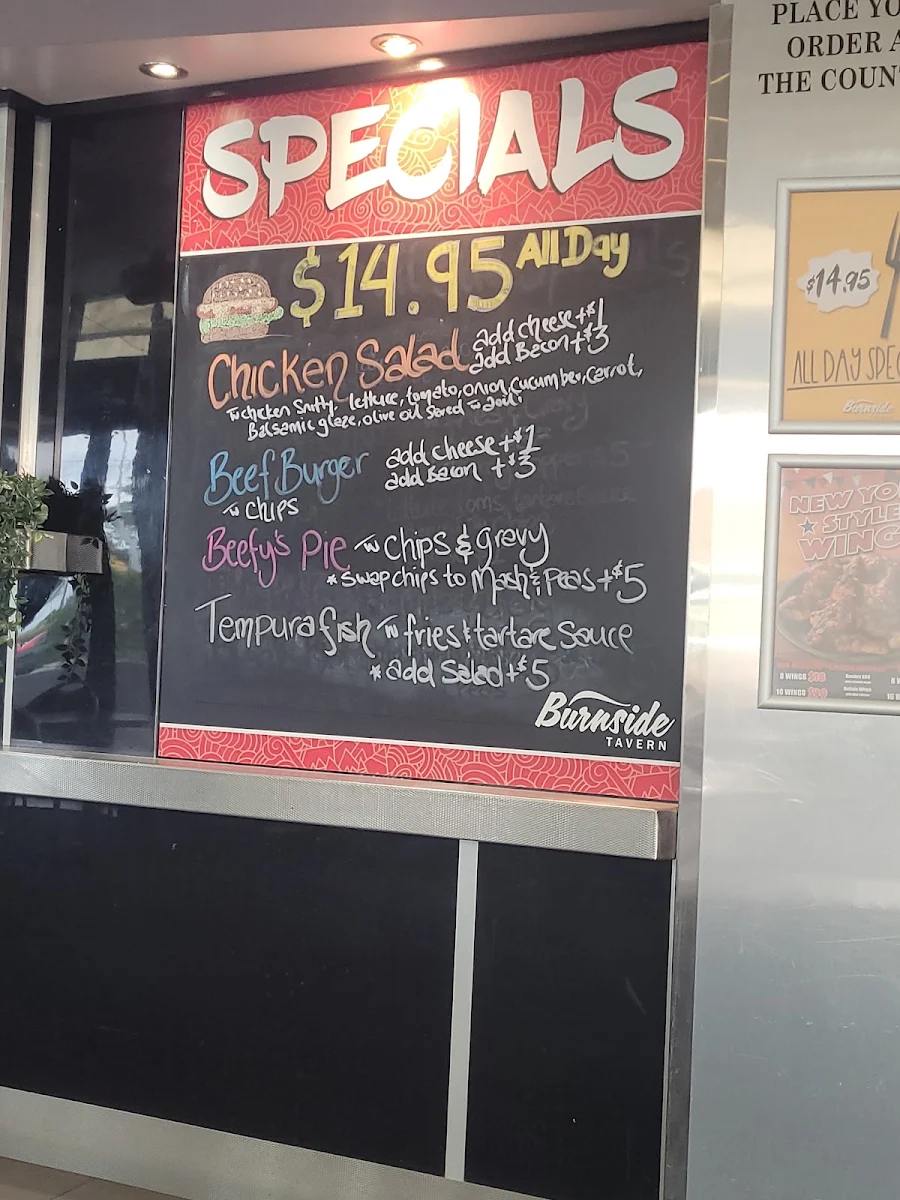 SPECIALS
$14.95 All Day
Chicken Salad add cheese +$1
add Bacon +$3
w chicken Snitty, lettuce, tomato, onion, cucumber, carrot,
Balsamic glaze, olive oil Served w aoli
Beef Burger add cheese +$1
add Bacon +$3
w chips
Beefy's Pie w chips & gravy
*swap chips to Mash & Peas +$5
Tempura fish w fries & tartare Sauce
*add Salad +$5
Burnside
TAVERN
PLACE YO
ORDER A
THE COUN
$14.95
ALL DAY SPEC
Burnside
NEW YO
STYLE
WING
8 WINGS
16 WINGS